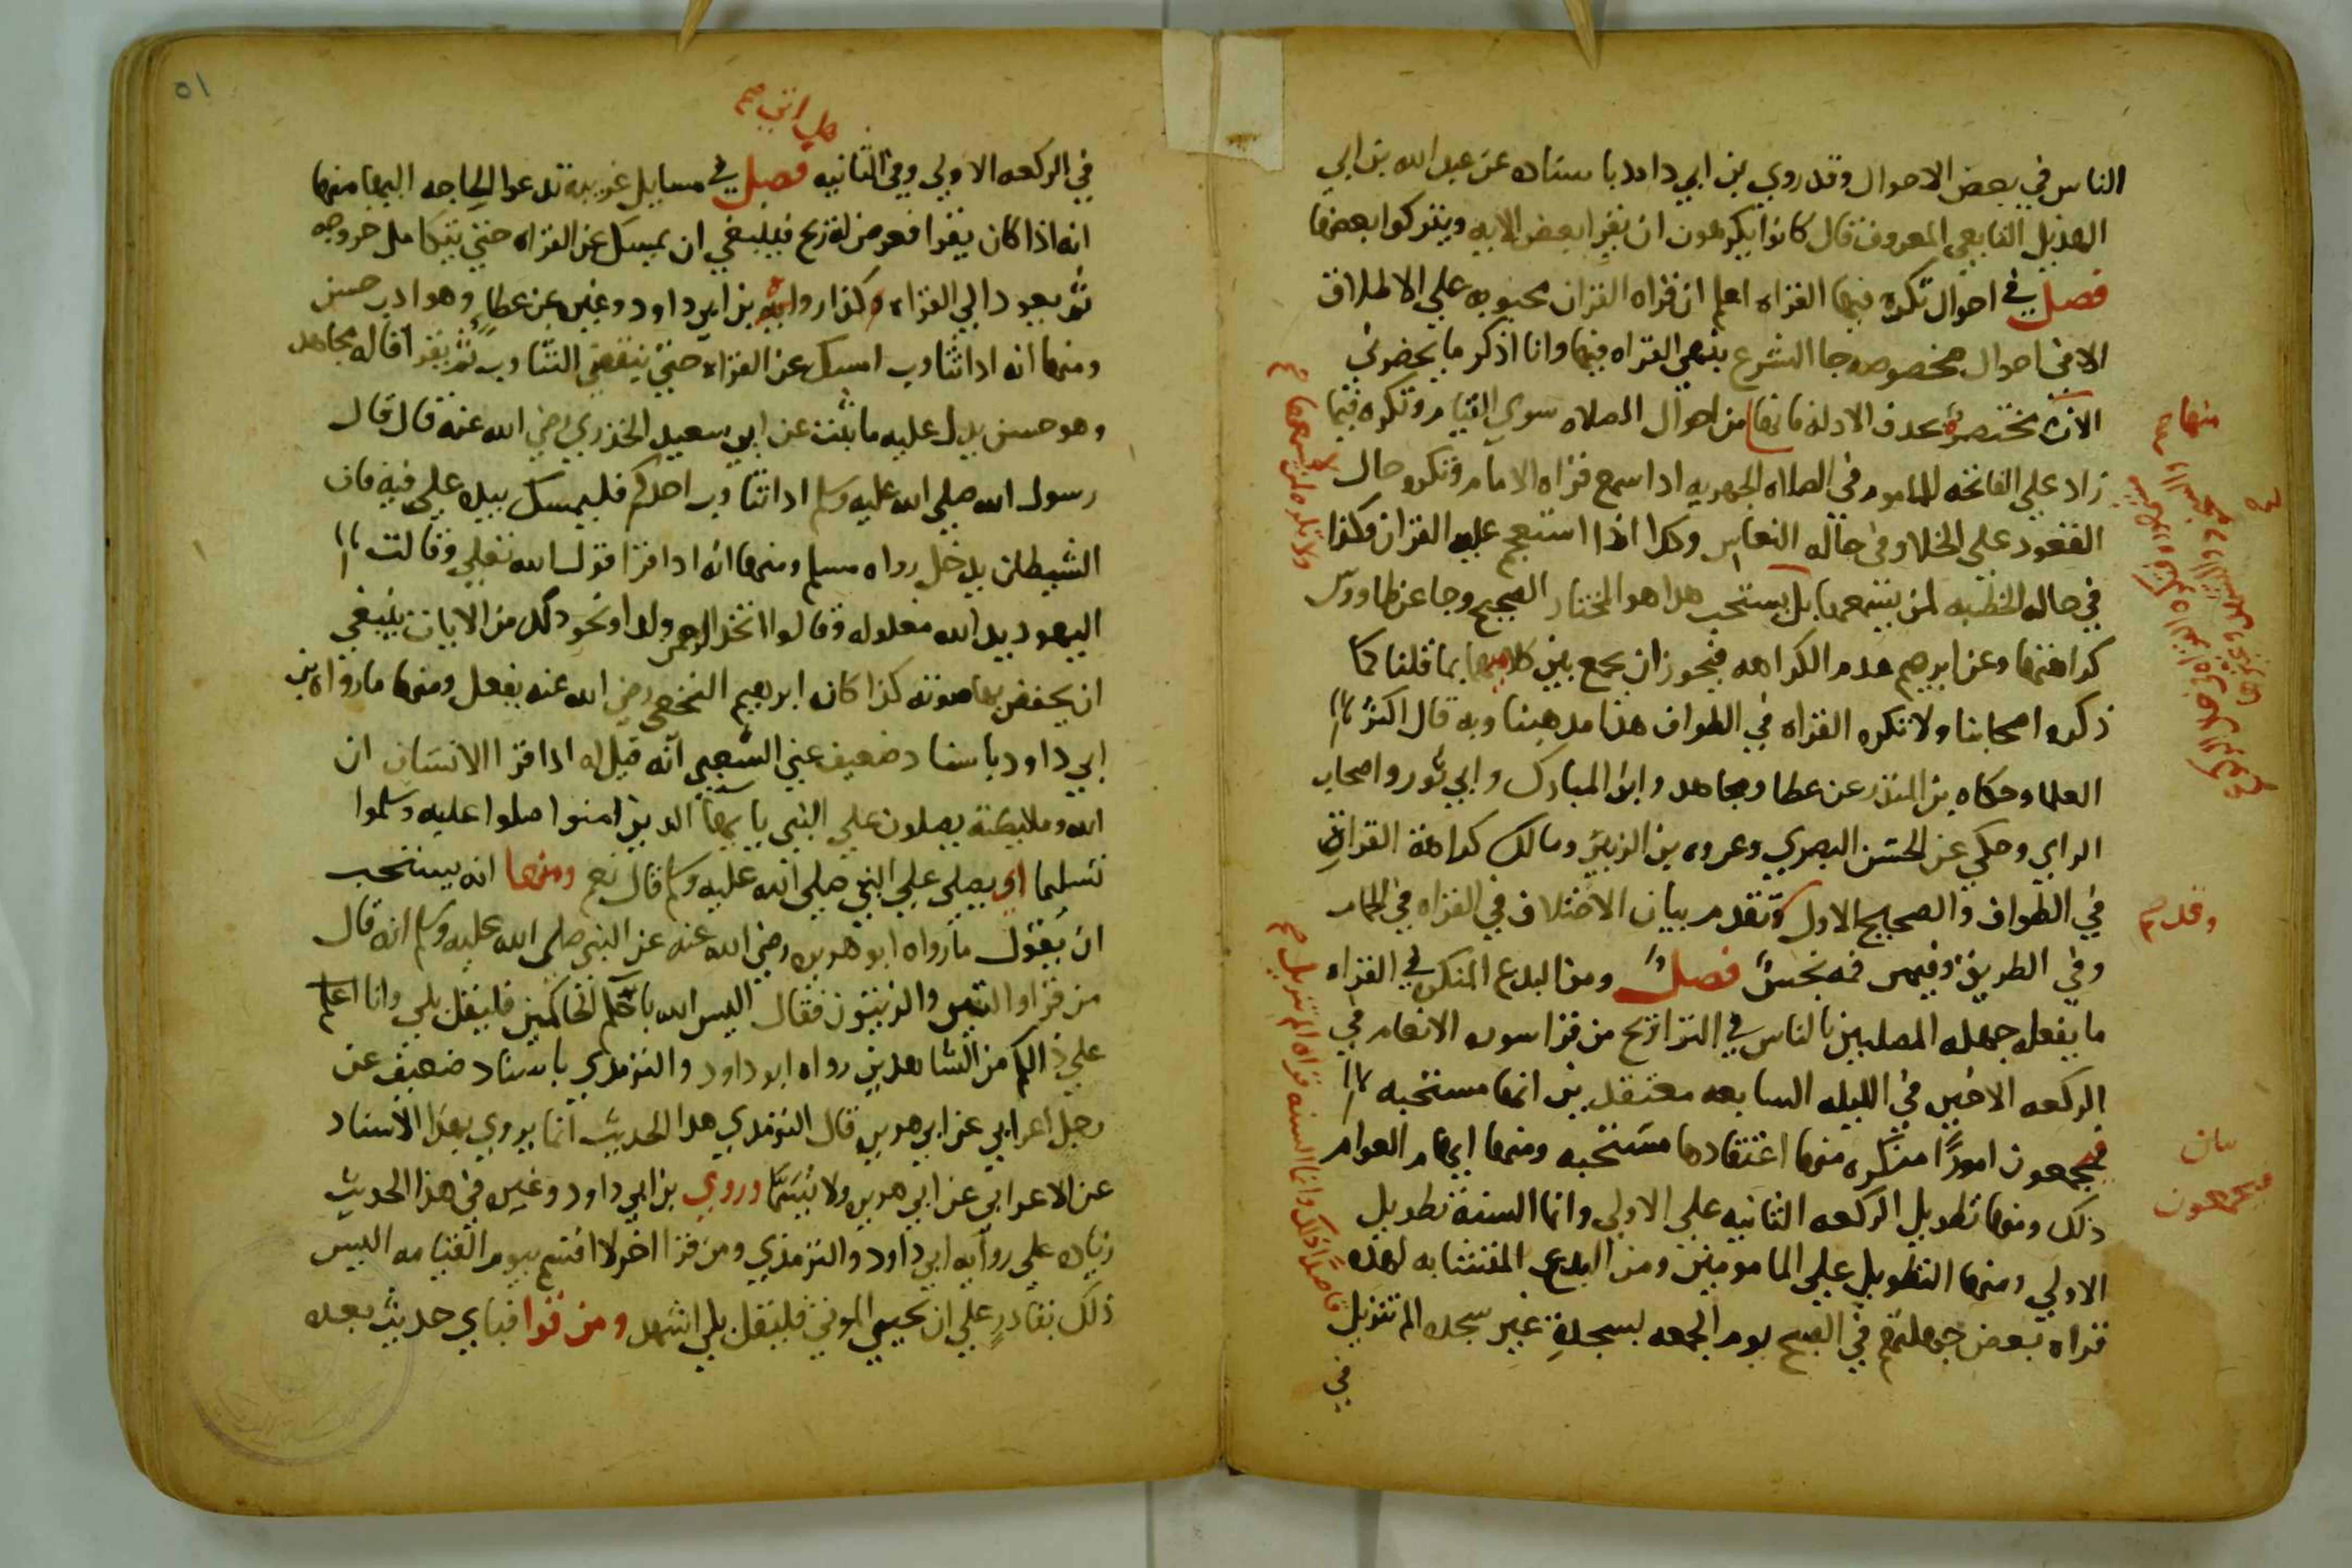 الناس في بعض الاحوال وقد روي بن ابي داود باسناده عن عبد الله بن ابي
الهذيل التابعي المعروف قال كانوا يكرهون ان يقرا بعض الايه ويتركوا بعضها
فصل في احوال تكره فيها القراه اعلم ان قراه القران محبوبه علي الاطلاق
الا في احوال مخصوصه جا الشرع بنهي القراه فيها وانا اذكر ما يحضرني
الان مختصره بحذف الادله فانها من احوال الصلاه سوي القيام وتكره فيما
زاد علي الفاتحه للماموم في الصلاه الجهريه اذا سمع قراه الامام وتكره حال
القعود علي الخلا وفي حاله النعاس وكذا اذا استعجم عليه القران وكذا
في حاله الخطبه لمن يسمعها بل يستحب هذا هو المختار الصحيح وجا عن طاووس
كراهتها وعن ابرهيم عدم الكراهه فيجوز ان يجمع بين كلاميهما بما قلنا كما
ذكره اصحابنا ولا تكره القراه في الطواف هذا مذهبنا وبه قال اكثر
العلما وحكاه بن المنذر عن عطا ومجاهد وابن المبارك وابي ثور واصحاب
الراي وحكي عن الحسن البصري وعروه بن الزبير ومالك كراهة القراة
في الطواف والصحيح الاول وتقدم بيان الاختلاف في القراه في الحمام
وفي الطريق وفيمن فمه نجس فصل ومن البدع المنكره في القراه
ما يفعله جهله المصليين بالناس في التراويح من قرا سوره الانعام في
الركعه الاخيره في الليله السابعه معتقدين انها مستحبه
فيجمعون امورًا منكره منها اعتقادها مستحبه ومنها ايهام العوام
ذلك ومنها تطويل الركعه الثانيه علي الاولي وانما السنة تطويل
الاولي ومنها التطويل علي المامومين ومن البدع المتشابه لهذه
قراه بعض جهلتهم في الصبح يوم الجمعه بسجدة غير سجده الم تنزيل
في
منها
وقد صح
بيان
فيجمعون
قاصدًا ذلك وانما السنه قراه الم تنزيل صح
٥١
في الركعه الاولي وفي الثانيه فصل في مسايل غريبه تدعوا الحاجه اليها منها
انه اذا كان يقرا فعرض له ريح فينبغي ان يمسك عن القراه حتي يتكامل خروجه
ثم يعود الي القراه وكذا رواه بن ابي داود وغيره عن عطا وهو ادب حسن
ومنها انه اذا تثاوب امسك عن القراه حتي ينقضي التثاوب ثم يقرا قاله مجاهد
وهو حسن يدل عليه ما ثبت عن ابي سعيد الخدري رضي الله عنه قال قال
رسول الله صلي الله عليه وسلم اذا تثاوب احدكم فليمسك بيده علي فيه فان
الشيطان يدخل رواه مسلم ومنها انه اذا قرا قول الله تعلي وقالت
اليهود يد الله مغلوله وقالوا اتخذ الرحمن ولدا ونحو ذلك من الايات ينبغي
ان يخفض بها صوته كذا كان ابرهيم النخعي رضي الله عنه يفعل ومنها ما رواه بن
ابي داود باسناد ضعيف عن الشعبي انه قيل له اذا قرا الانسان ان
الله وملايكته يصلون علي النبي يا يها الذين امنوا صلوا عليه وسلموا
تسليما اي يصلي علي النبي صلي الله عليه وسلم قال نعم ومنها انه يستحب
ان يقول ما رواه ابو هريره رضي الله عنه عن النبي صلي الله عليه وسلم انه قال
من قرا والتين والزيتون فقال اليس الله باحكم الحاكمين فليقل بلي وانا
علي ذالكم من الشاهدين رواه ابو داود والترمذي باسناد ضعيف عن
رجل اعرابي عن ابي هريره قال الترمذي هذا الحديث انما يروي بهذا الاسناد
عن الاعرابي عن ابي هريره ولا يسما وروي بن ابي داود وغيره في هذا الحديث
زياده علي روايه ابي داود والترمذي ومن قرا اخر لا اقسم بيوم القيامه اليس
ذلك بقادر علي ان يحيي الموتي فليقل بلي اشهد ومن قرا فباي حديث بعده